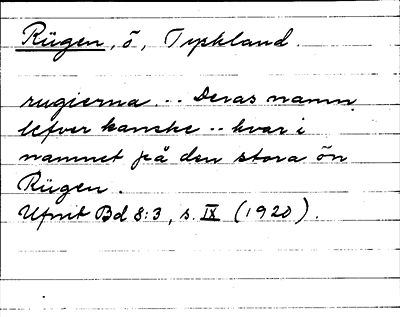 Rügen, ö, Tyskland.
rugierna... Deras namn
lefver kanske .. kvar i
namnet på den stora ön
Rügen.
Ufmt Bd 8:3, s. IX (1920).